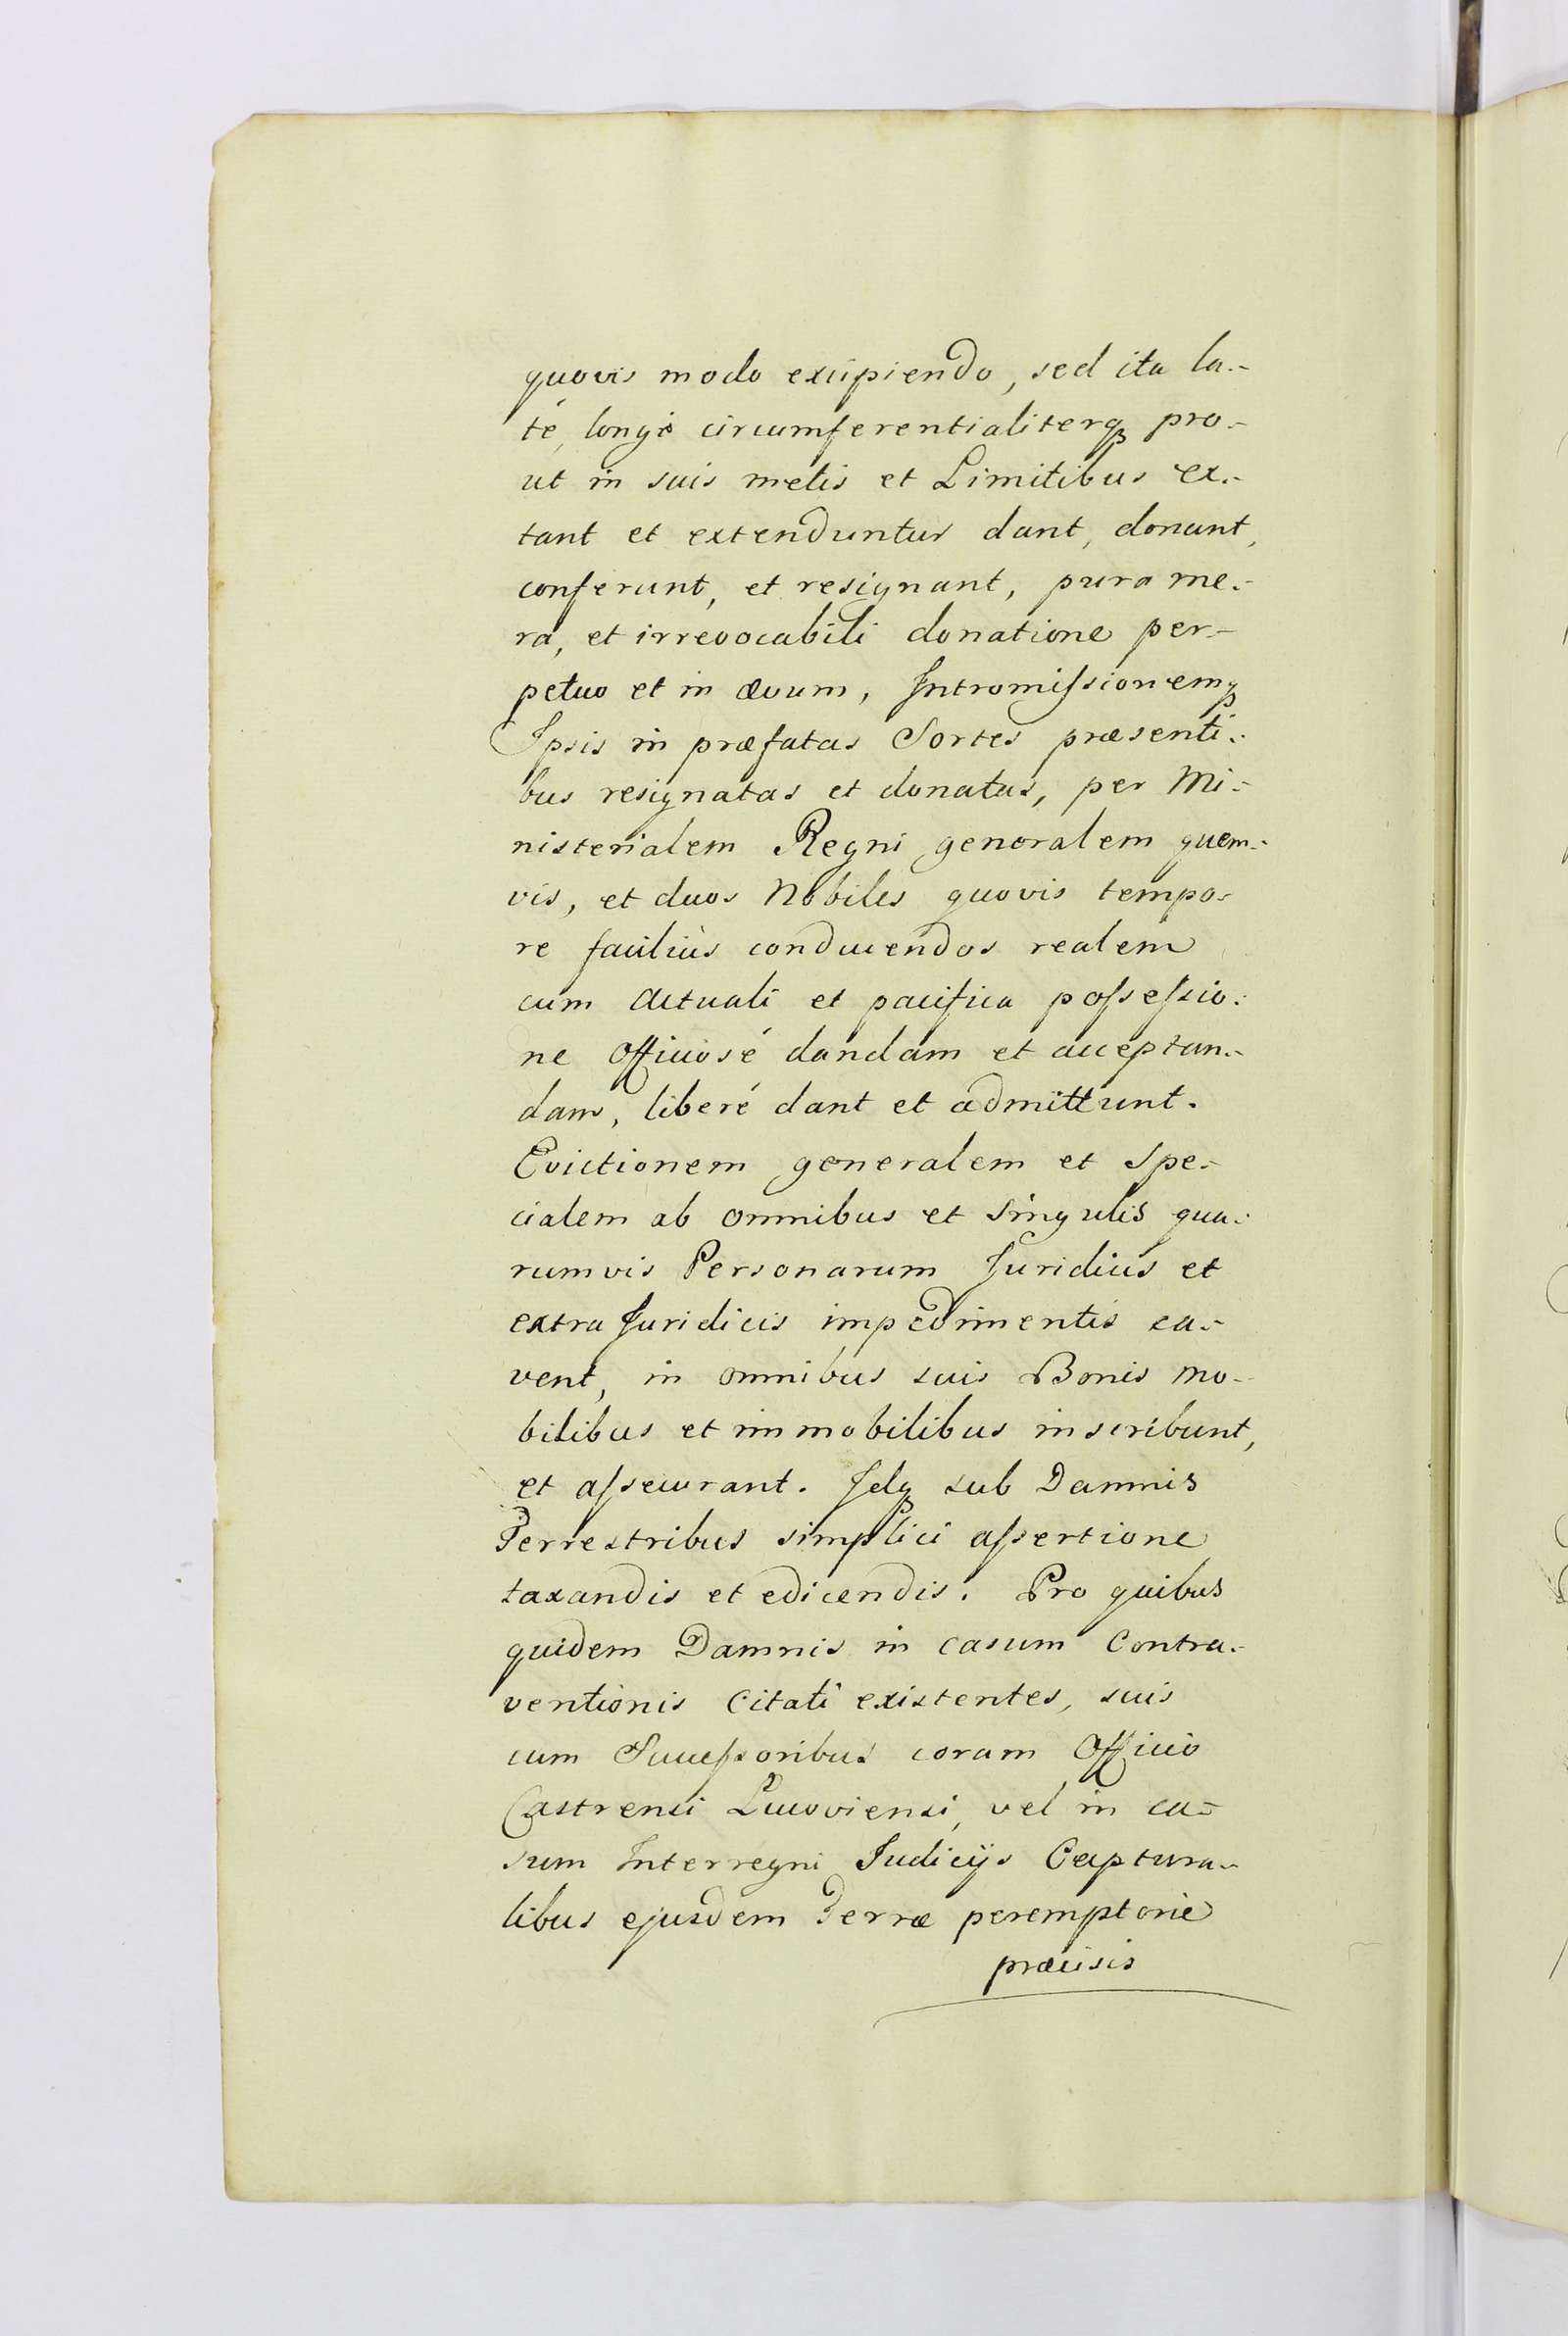 quovis modo excipiendo, sed ita la-
té, longé circumferentialiterq pro-
ut in suis metis et Limitibus ex-
tant et extenduntur dant, donant,
conferunt, et resignant, pura me-
ra, et irrevocabili donatione per-
petuo et in ævum, Intromissionemq
Ipsis in præfatas Sortes præsenti-
bus resignatas et donatas, per Mi-
nisterialem Regni generalem quem-
vis, et duos Nobiles quovis tempo-
re faciliùs conducendos realem
cum actuali et pacifica possessio-
ne Officiosé dandam et acceptan-
dam, liberé dant et admittunt.
Evictionem generalem et Spe-
cialem ab omnibus et singulis qua-
rumvis Personarum Juridicis et
extra Juridicis impedimentis ca-
vent, in omnibus suis Bonis mo-
bilibus et immobilibus inscribunt,
et assecurant. Idq sub Damnis
Terrestribus simplici assertione
taxandis et edicendis. Pro quibus
quidem Damnis in casum Contra-
ventionis Citati existentes, suis
cum Successoribus coram Officio
Castrensi Lucoviensi, vel in ca-
sum Interregni Judicijs Captura-
libus ejusdem Terræ peremptorie
præcisis